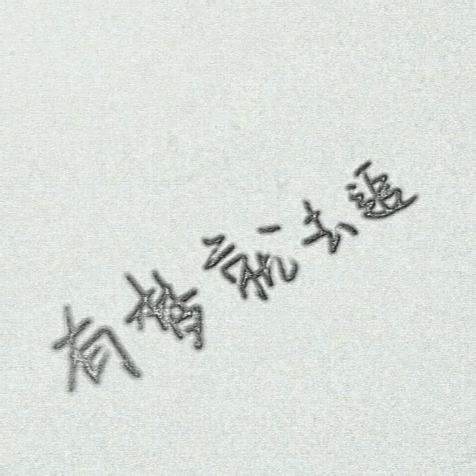 有梦就去追